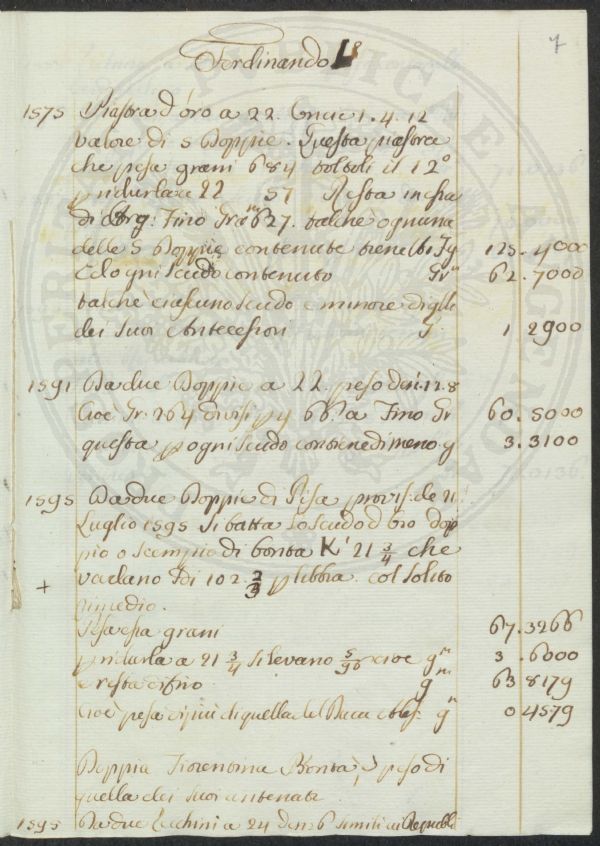 7
Ferdinando I.º
1575 Piastra d'oro a 22. Oncie 1. 4. 12
valore di 5 Doppie. Questa piastra
che pesa grani 684 toltoli il 12º
p ridurla a 22 57 Resta in essa
di Fino Gra 627. talchè ognuna
delle 5 Doppie contenute tiene 125. 4000
ogni scudo contenuto Grⁿ 62. 7000
talchè ciascuno scudo è minore degli
dei Suoi Antecessori g 1 2900
1591 Da due Doppie a 22. peso den. 11. 8
Cioè Gr. 264 divisi p 4 66. a Fino Gr 60. 5000
questa p ogni scudo contiene di meno g 3. 3100
1595 Da due Doppie di Pisa provis. de 21.
Luglio 1595 si batta lo scudo d'oro dop
pio o scempio di bontà K' 21 3/4 che
vadano di 102. 2/3 p libbra. col solito
+ rimedio.
Pesa essa grani 67. 3266
p ridurla a 21 3/4 si levano 5/96 cioè gⁿ 3. 6000
e resta di fino gⁿ 63 8179
Cioè pesa di più di quella del Duca Aless. gⁿ 0 4579
Doppia Fiorentina Bontà, e peso di
quella dei suoi antenati
1595 Da due Zecchini a 24 den 6 simili ai Repubbli